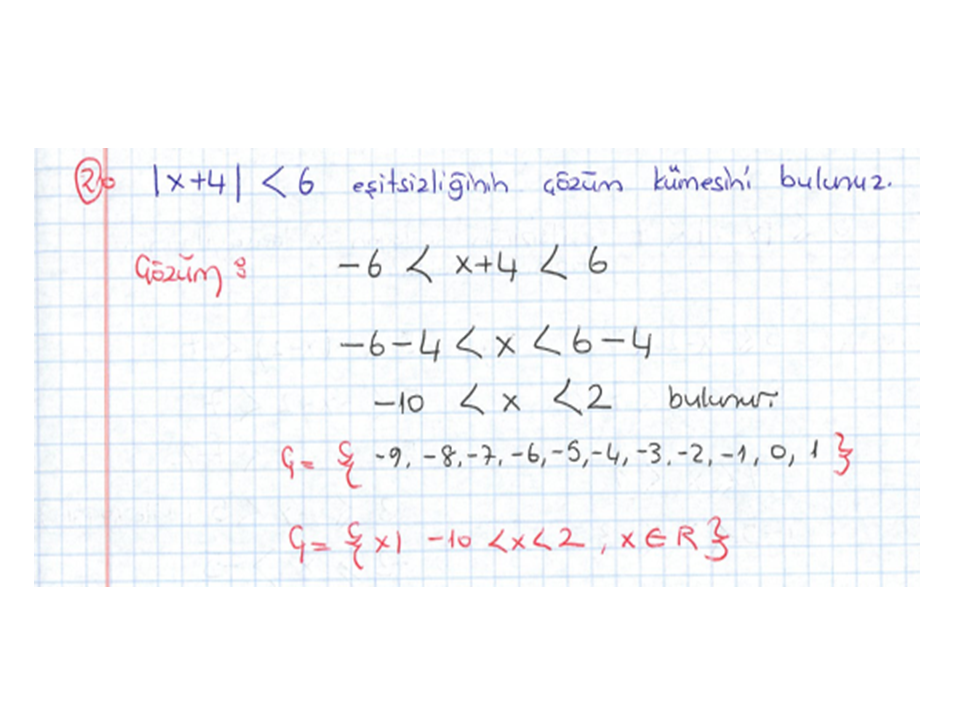 2. |x+4| < 6 eşitsizliğinin çözüm kümesini bulunuz.
Çözüm : -6 < x+4 < 6
-6-4 < x < 6-4
-10 < x < 2 bulunur.
Ç= { -9, -8, -7, -6, -5, -4, -3, -2, -1, 0, 1 }
Ç= { x| -10 < x < 2, x ∈ R }